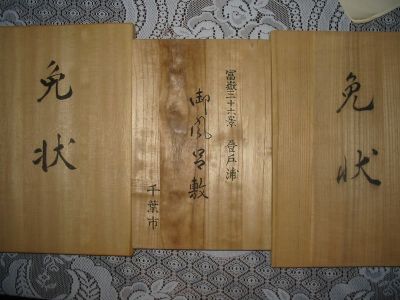 免状
富嶽三十六景 登戸浦
御風呂敷
千葉市
免状